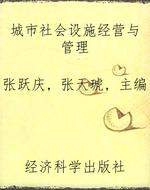 城市社会设施经营与
管理
张跃庆，张天琥，主编
经济科学出版社